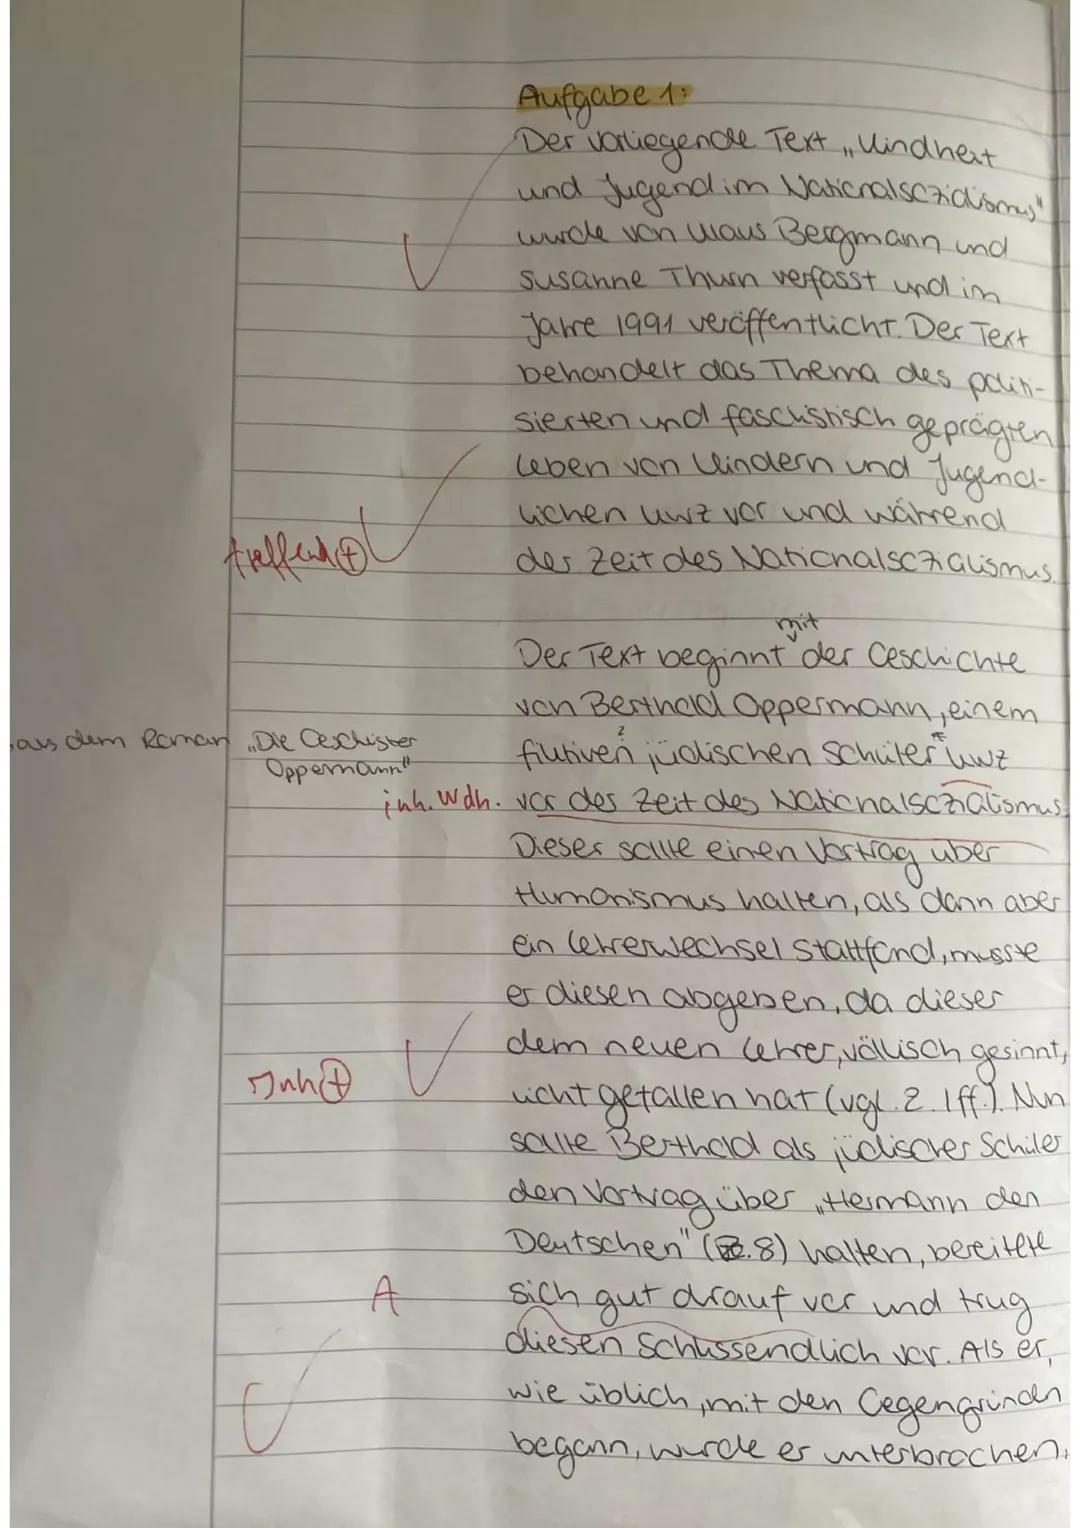 Aufgabe 1:
Der vorliegende Text „Kindheit
und Jugend im Nationalsozidismus"
wurde von Klaus Bergmann und
Susanne Thurn verfasst und im
Jahre 1991 veröffentlicht. Der Text
behandelt das Thema des politi-
sierten und faschistisch geprägten
Leben von Kindern und Jugend-
lichen kurz vor und während
treffend (+) der Zeit des Nationalsozialismus.
mit
Der Text beginnt der Geschichte
von Berthold Oppermann, einem
aus dem Roman „Die Geschister fiktiven jüdischen Schüler kurz
Oppermann"
inh. Wdh. vor der Zeit des Nationalsozialismus.
Dieser sollte einen Vortrag über
Humanismus halten, als dann aber
ein Lehrerwechsel stattfand, musste
er diesen abgeben, da dieser
dem neuen Lehrer, völkisch gesinnt,
Inh (+) nicht gefallen hat (vgl. Z. 1ff.). Nun
sollte Berthold als jüdischer Schüler
den Vortrag über „Hermann den
Deutschen" (Z. 8) halten, bereitete
A sich gut drauf vor und trug
diesen Schlussendlich vor. Als er,
wie üblich, mit den Gegengründen
begann, wurde er unterbrochen,